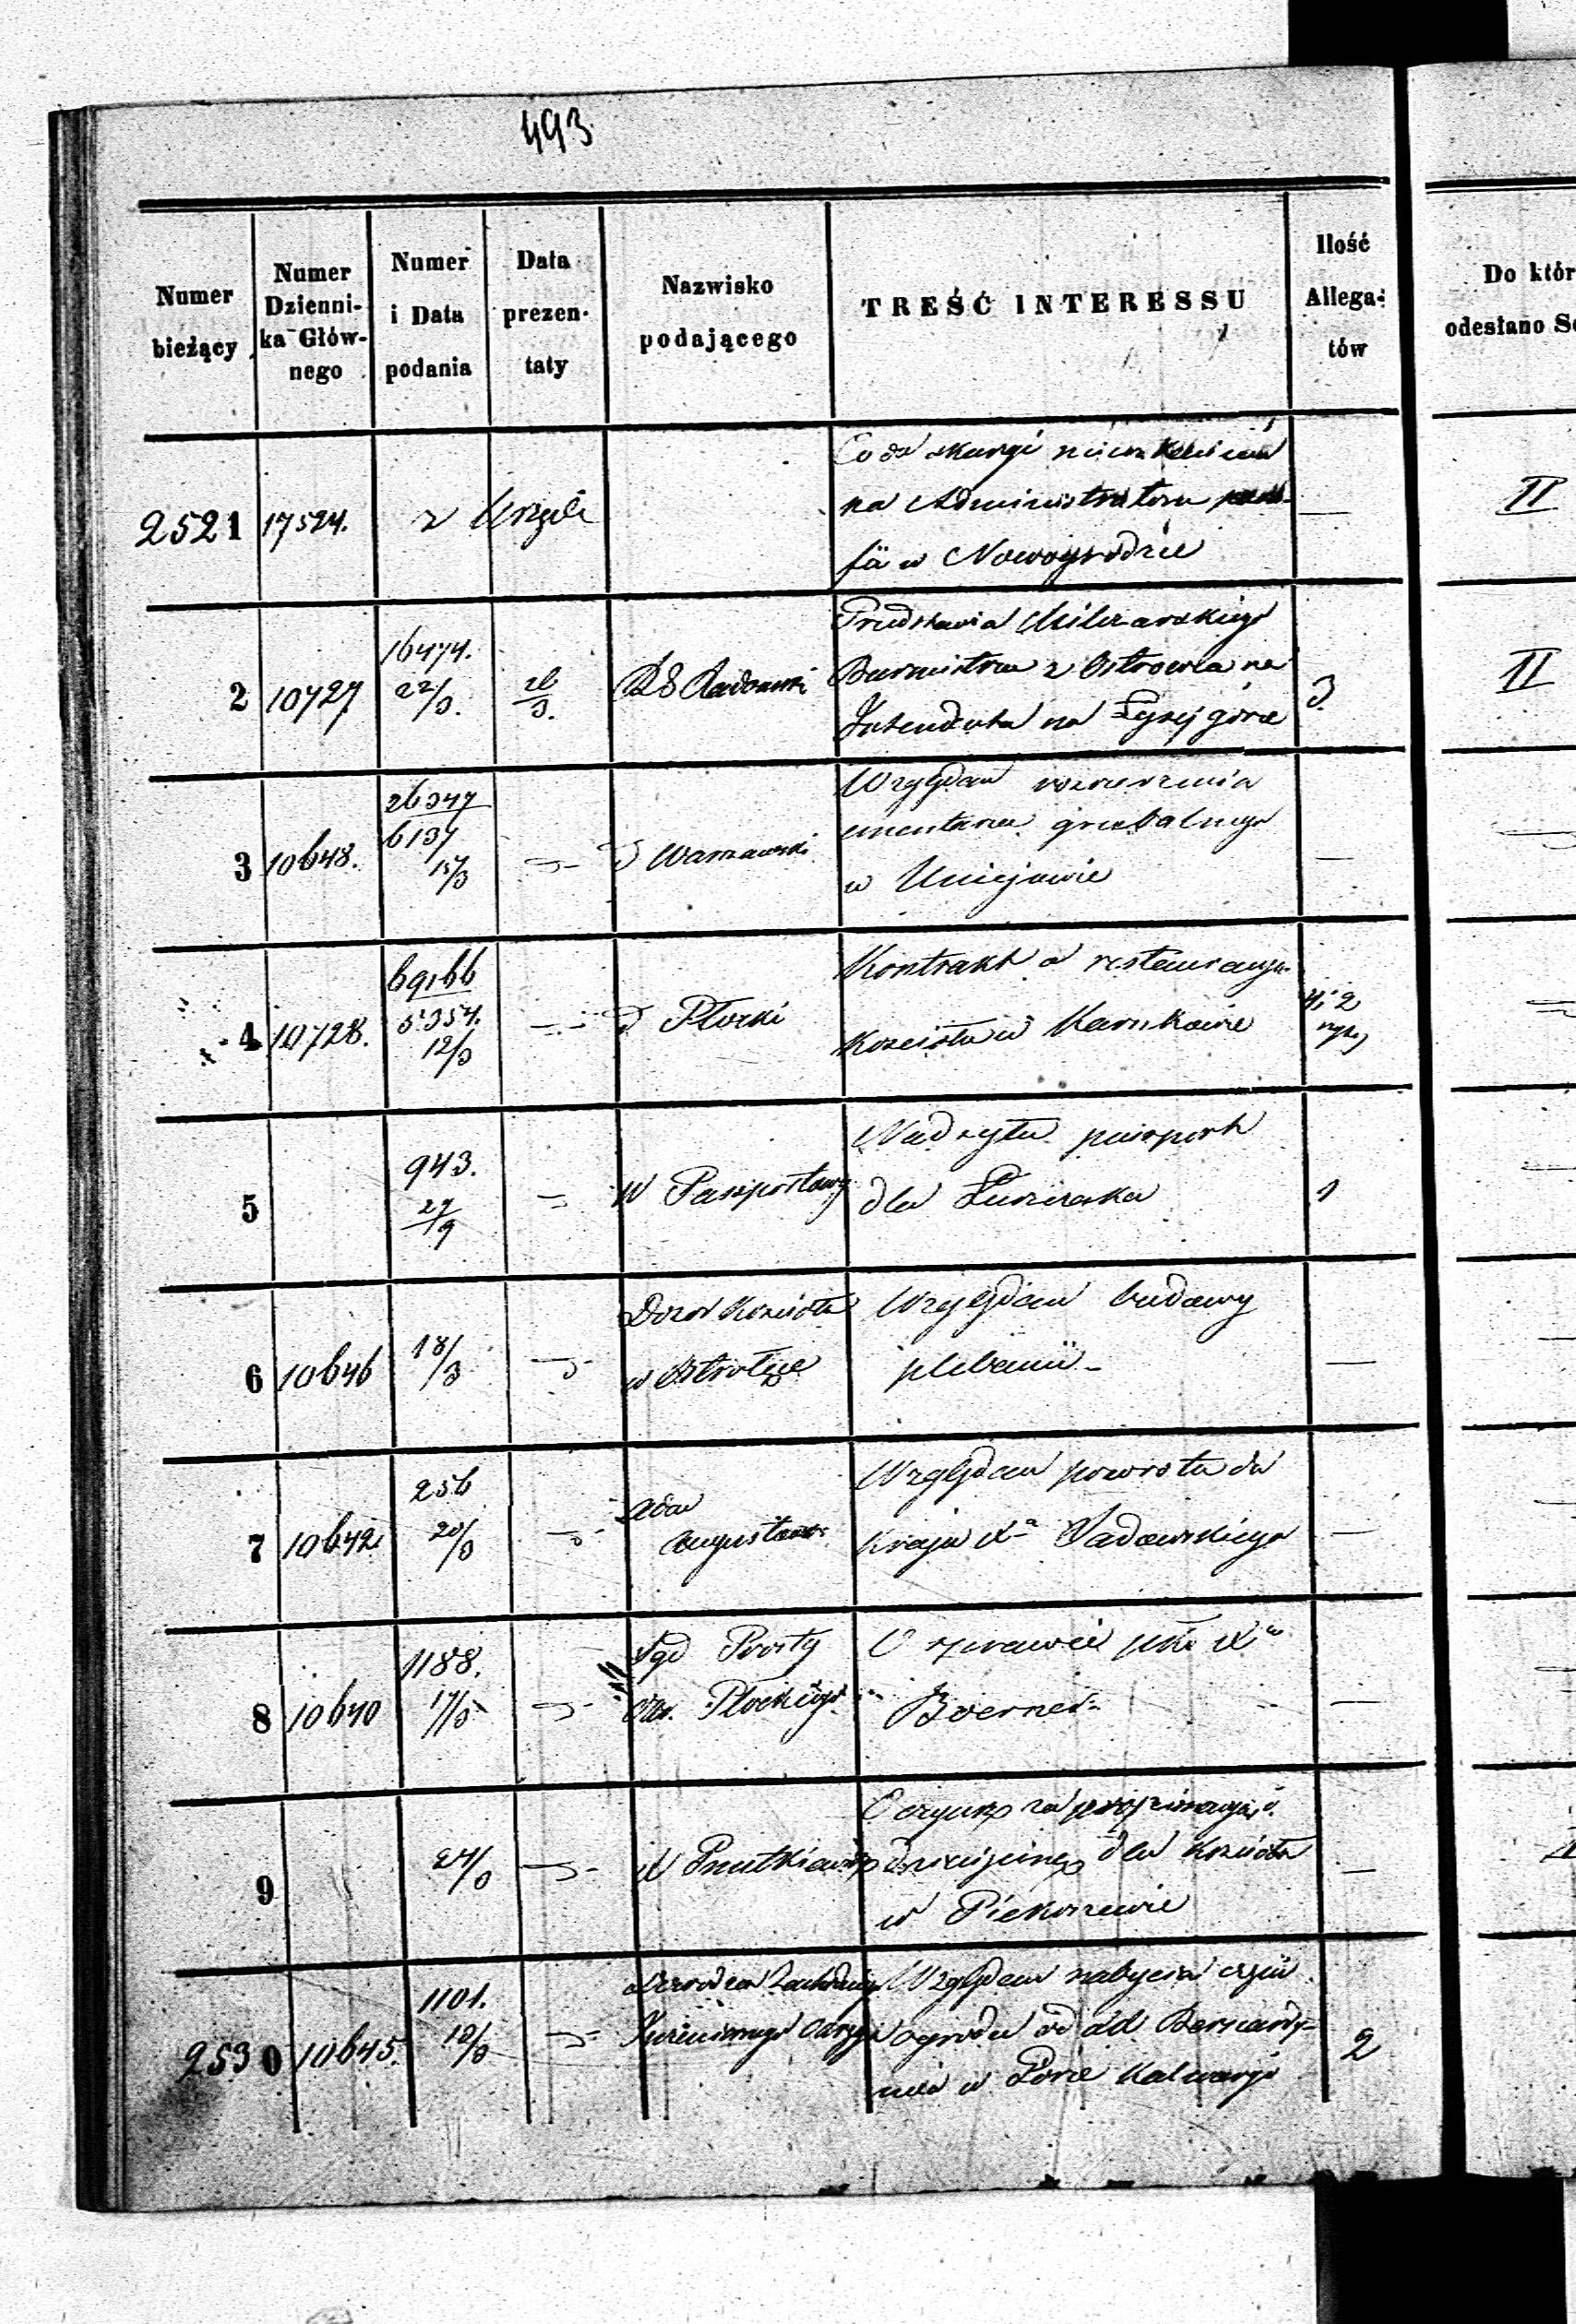 493.
Numer bieżący
Numer Dzienni-
ka Głów-
nego
Numer
i Data
podania
Data
prezen-
taty
Nazwisko
podającego
TREŚĆ INTERESSU
Ilość
Allega-
tów
Do któr
odesłano Se
2521 17524. z Urzędu
Co do skargi
na Administratora
w Nowogrodzie
—
II
2 10727 16474.
22/3. 26/3.
RG Radomski
Przedstawia Milczarskiego
Burmistrza z Ostrowca na
Intendenta na Łysej górze
3.
II
3 10648. 26347
6137
15/3
d Warszawski
Względem rozszerzenia
cmentarza grzebalnego
w Uniejowie
—
4 10728. 69166
5354.
12/3
d Płocki
Kontrakt o restauracyą
Kościoła w Karnkowie
4 i 2
5 943.
27/9
W Paszportowy
Nadsyła paszport
dla
1
6 10646 18/3
Dozór Kościoła
w Ostrołęce
Względem budowy
plebanii -
—
7 10642 256
20/3
Adm
Augustows
Względem powrotu do
Kraju Xa Sadowskiego
—
8 10640 1188.
17/3
Sąd Prosty
Płockiego
O sprawie Xa
Boerner
—
9 24/3
X
O czynsz za propinacyą i
dziesięcinę dla Kościoła
w
—
2530 10645. 1101.
10/3
Naczelnik Zachodniego
Inżeniernego Okręgu
Względem nabycia części
ogrodu od Bernardy-
nów w Górze Kalwaryi
2